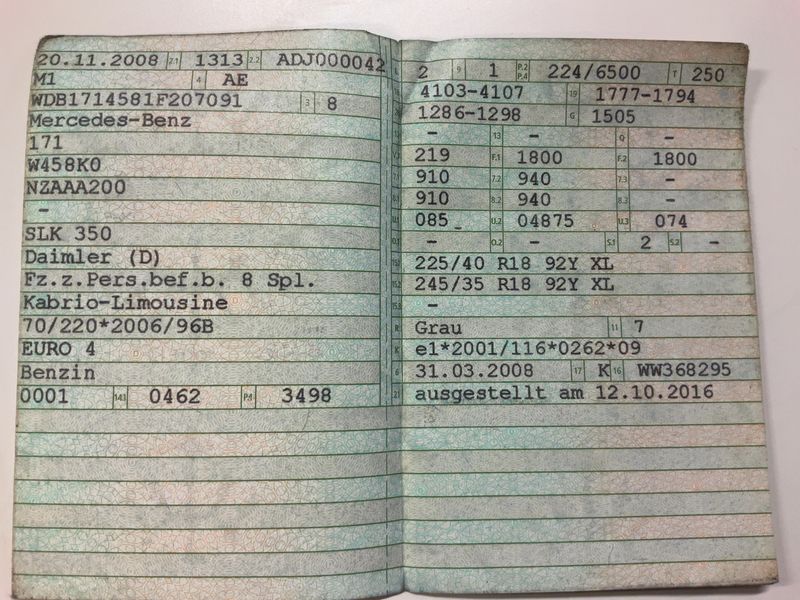 20.11.2008 2.1 1313 2.2 ADJ000042
M1 4 AE
WDB1714581F207091 3 8
Mercedes-Benz
171
W458K0
NZAAA200
–
SLK 350
Daimler (D)
Fz.z.Pers.bef.b. 8 Spl.
Kabrio-Limousine
70/220*2006/96B
EURO 4
Benzin
0001 14.1 0462 P.1 3498
L 2 9 1 P.2 P.4 224/6500 T 250
4103-4107 19 1777-1794
1286-1298 G 1505
– 13 – Q –
219 F.1 1800 F.2 1800
910 7.2 940 7.3 –
910 8.2 940 8.3 –
085 U.2 04875 U.3 074
– O.2 – S.1 2 S.2 –
225/40 R18 92Y XL
245/35 R18 92Y XL
–
R Grau 11 7
K e1*2001/116*0262*09
6 31.03.2008 17 K 16 WW368295
21 ausgestellt am 12.10.2016